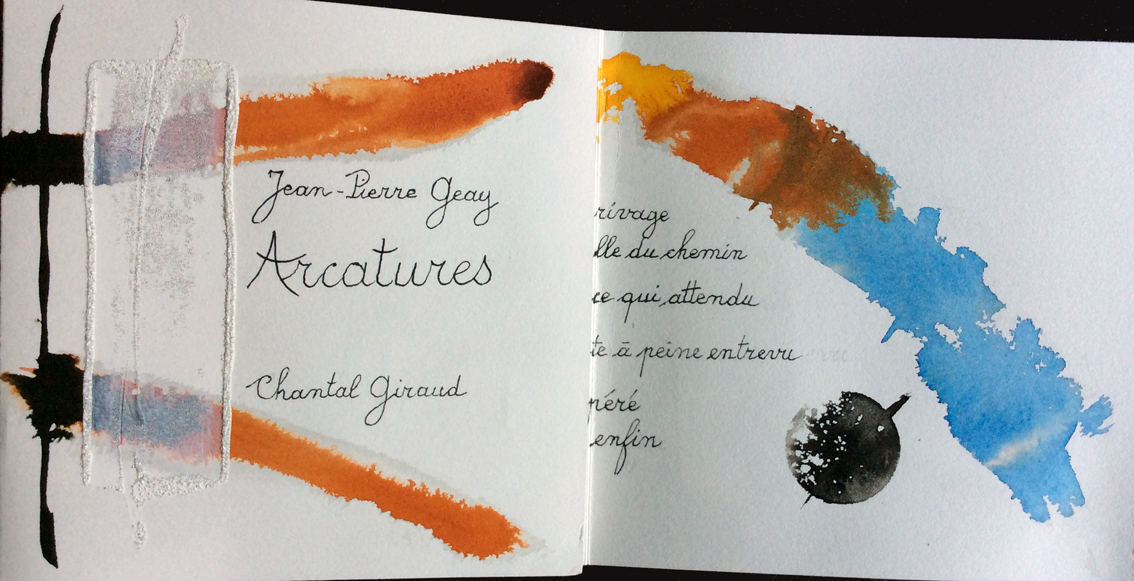 Jean-Pierre Geay
Arcatures
Chantal Giraud
rivage
lle du chemin
ce qui, attendu
te à peine entrevu
péré
enfin